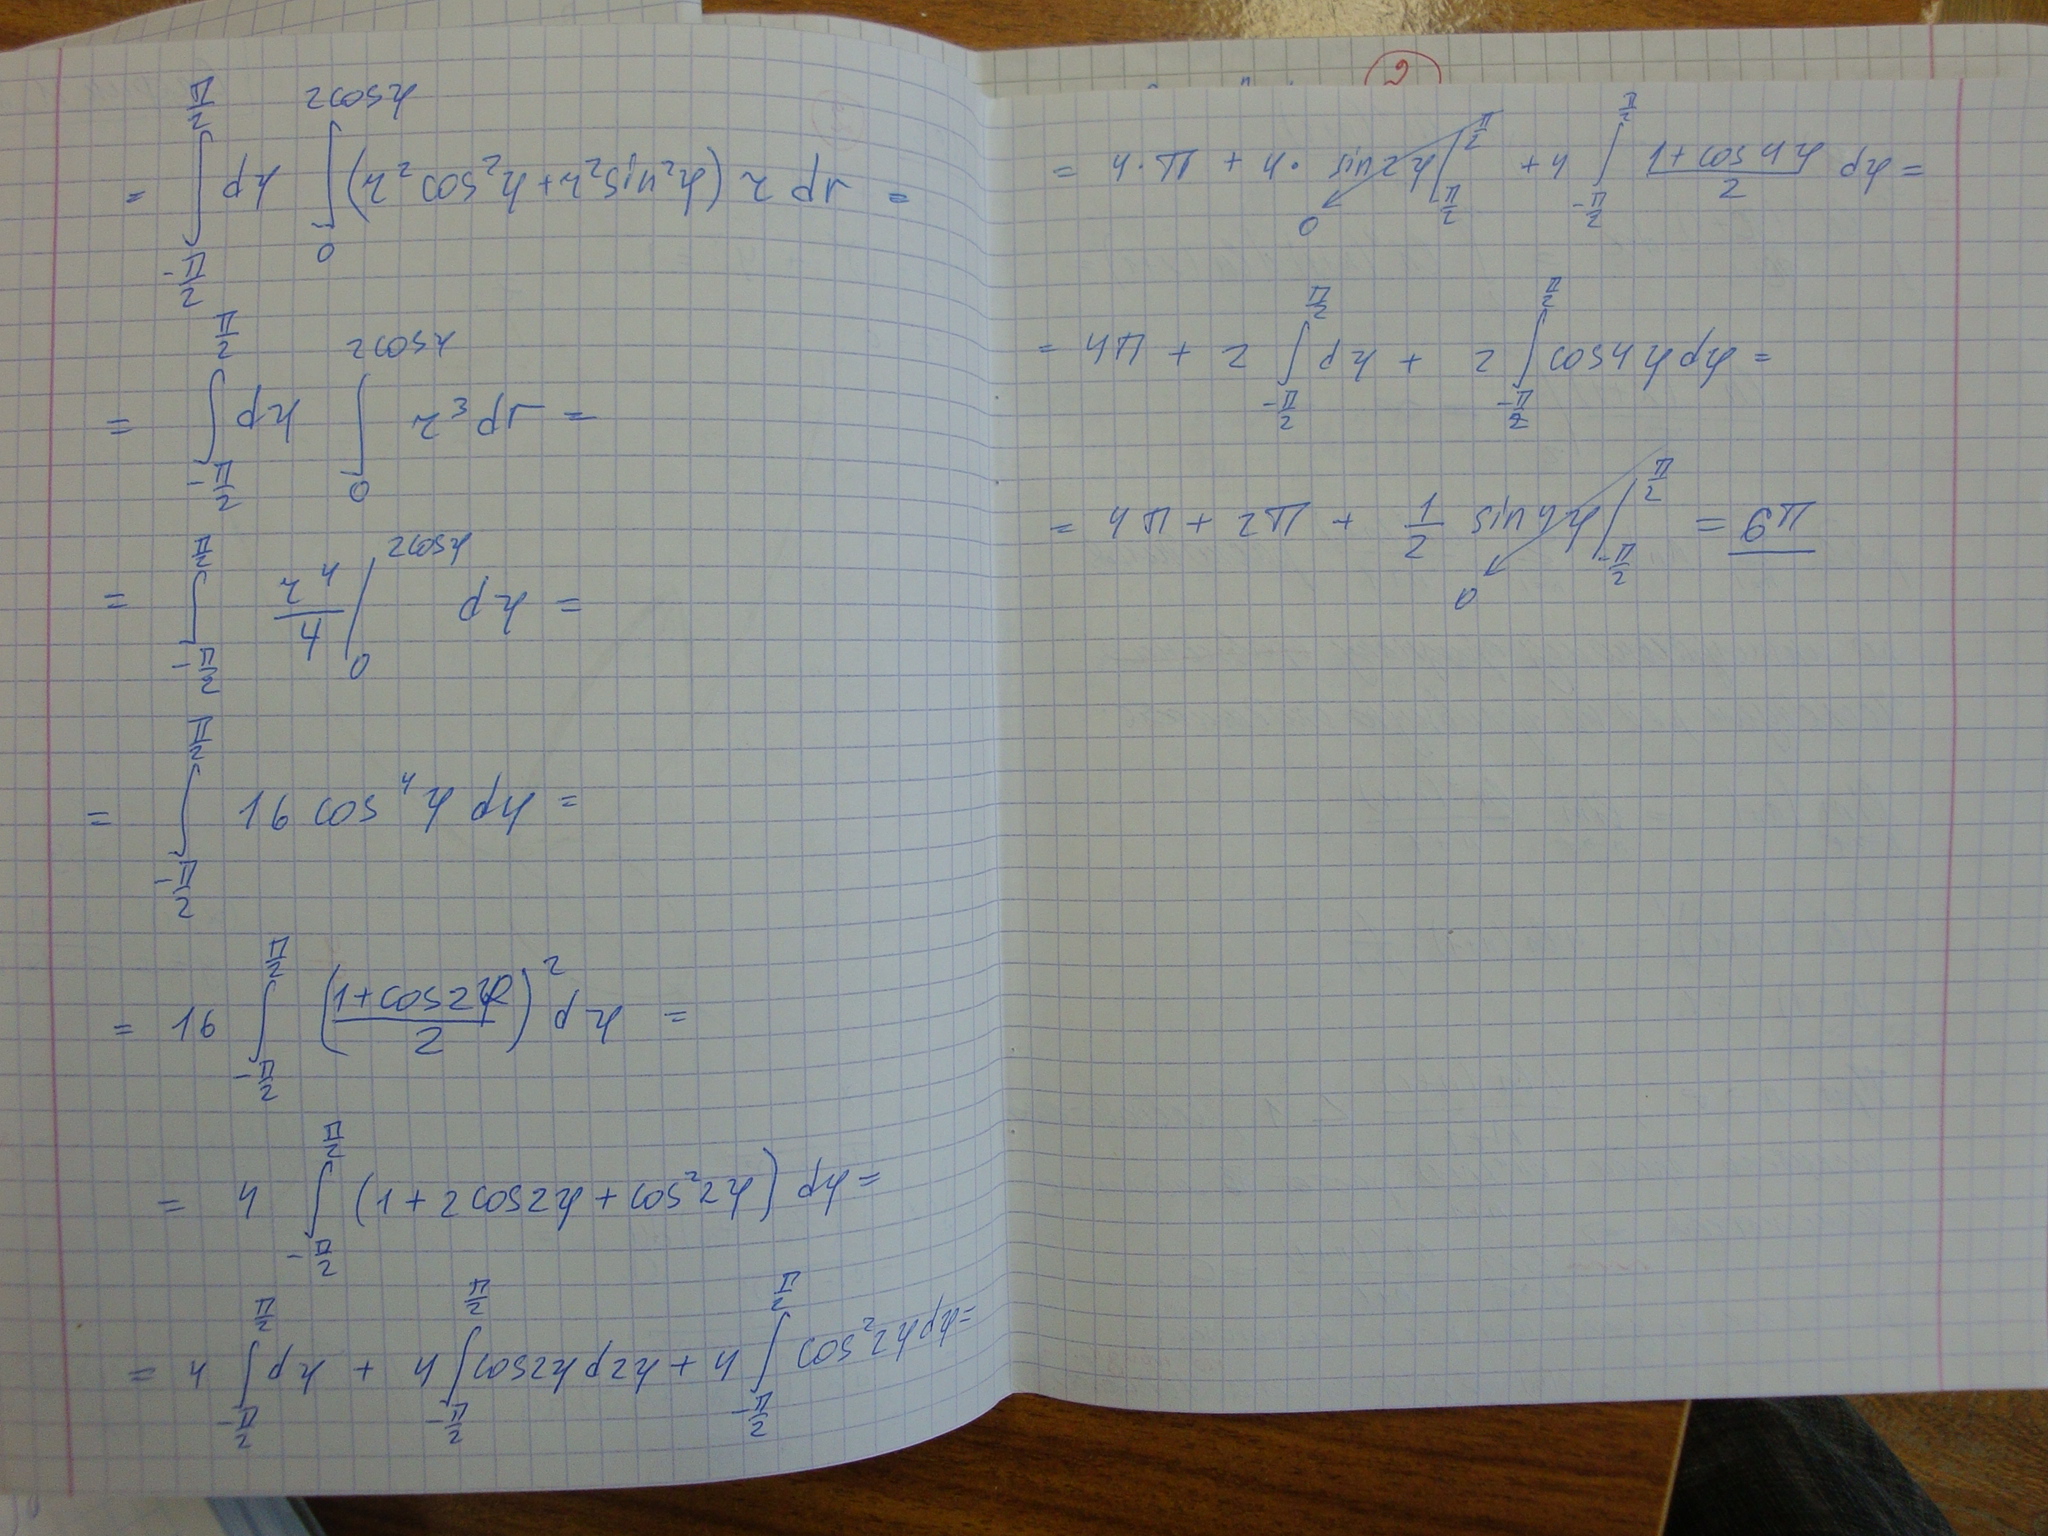 = ∫_{-π/2}^{π/2} dφ ∫_{0}^{2cosφ} (r²cos²φ + r²sin²φ) r dr =
= ∫_{-π/2}^{π/2} dφ ∫_{0}^{2cosφ} r³ dr =
= ∫_{-π/2}^{π/2} r⁴/4 |_{0}^{2cosφ} dφ =
= ∫_{-π/2}^{π/2} 16 cos⁴φ dφ =
= 16 ∫_{-π/2}^{π/2} ((1+cos2φ)/2)² dφ =
= 4 ∫_{-π/2}^{π/2} (1 + 2cos2φ + cos²2φ) dφ =
= 4 ∫_{-π/2}^{π/2} dφ + 4 ∫_{-π/2}^{π/2} cos2φ d2φ + 4 ∫_{-π/2}^{π/2} cos²2φ dφ =
2
= 4·π + 4· sin2φ |_{-π/2}^{π/2} + 4 ∫_{-π/2}^{π/2} (1+cos4φ)/2 dφ =
0
= 4π + 2 ∫_{-π/2}^{π/2} dφ + 2 ∫_{-π/2}^{π/2} cos4φ dφ =
= 4π + 2π + 1/2 sin4φ |_{-π/2}^{π/2} = 6π
0